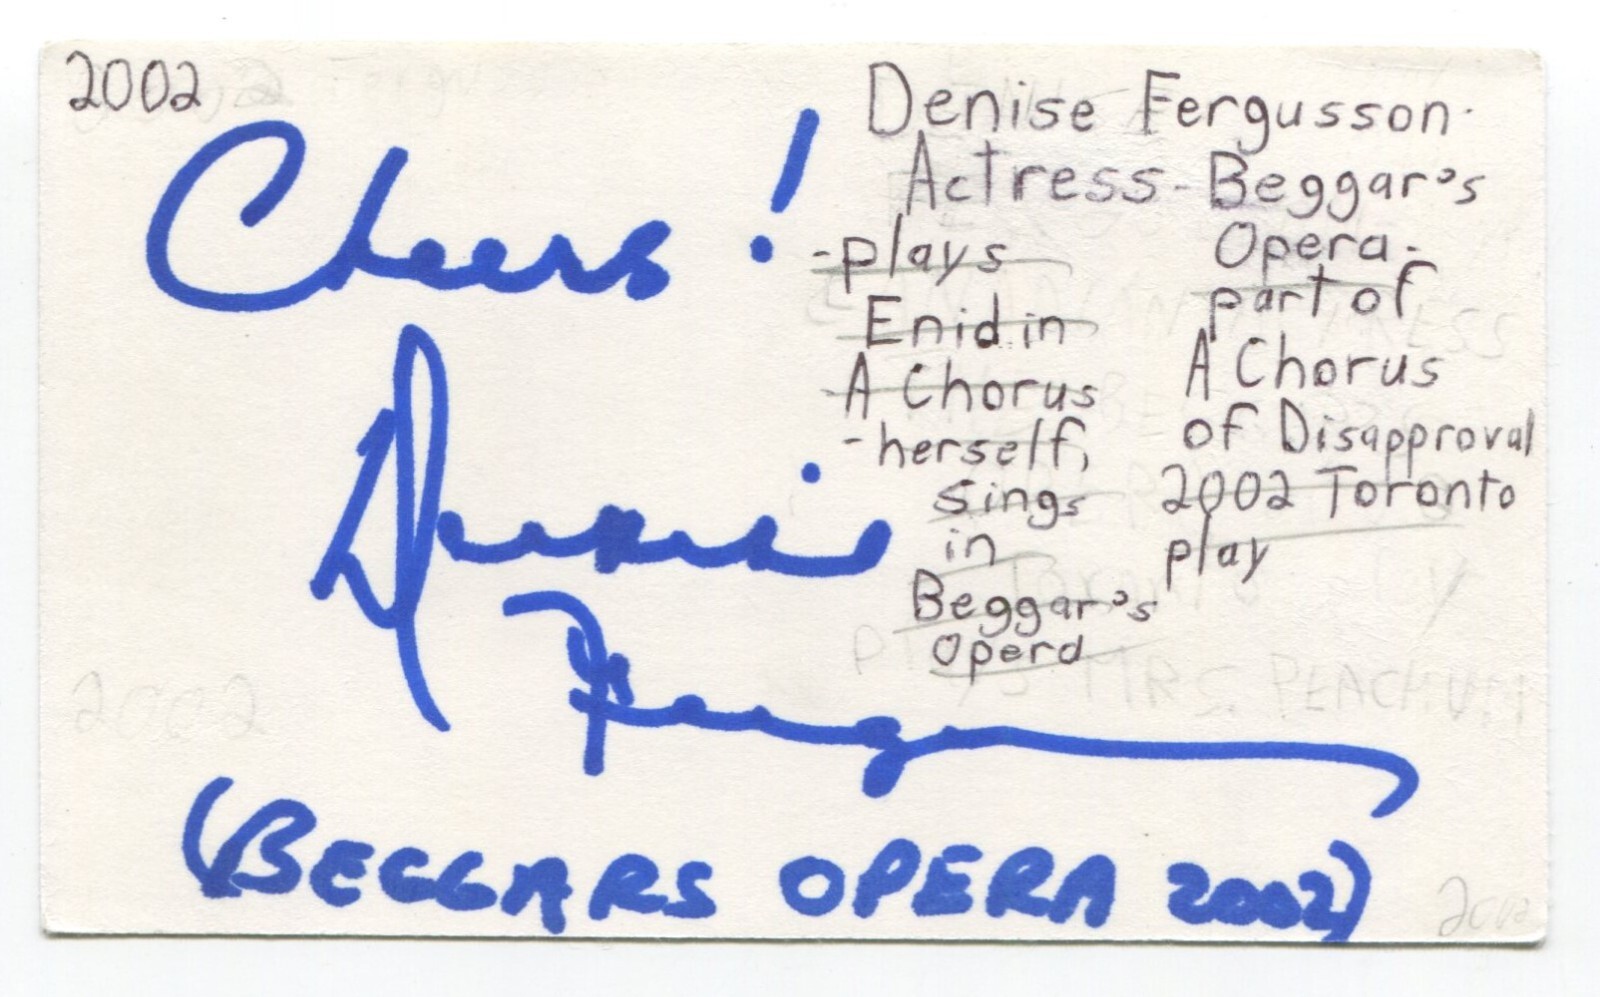 2002
Cheers!
Denise
Ferguson
(BEGGARS OPERA 2002)
Denise Fergusson-
Actress-Beggar's
Opera-
part of
A Chorus
of Disapproval
2002 Toronto
play
-plays
Enid in
A Chorus
-herself,
sings
in
Beggar's
Opera
2002
MRS. PEACHUM
2002